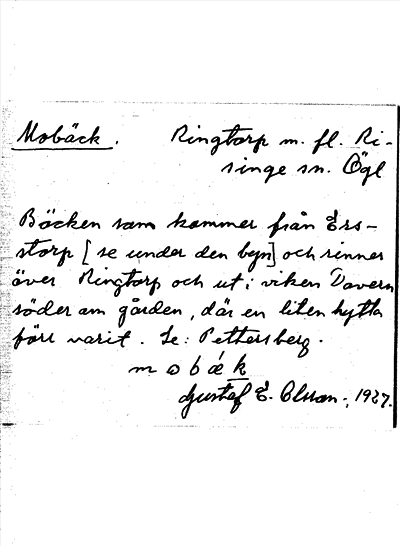 Mobäck. Ringtorp m. fl. Ri-
singe sn. Ögl
Bäcken som kommer från Ers-
torp [se under den byn] och rinner
över Ringtorp och ut i viken Dovern
söder om gården, där en liten hytta
förr varit. Se: Pettersberg.
m o b ǽ k
Gustaf E. Olsson, 1927.